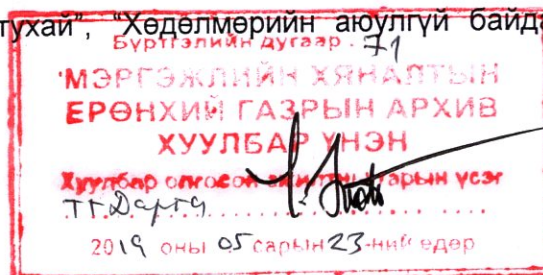 тухай", "Хөдөлмөрийн аюулгүй байда
Бүртгэлийн дугаар . 71
МЭРГЭЖЛИЙН ХЯНАЛТЫН
ЕРӨНХИЙ ГАЗРЫН АРХИВ
ХУУЛБАР ҮНЭН
Хуулбар олгосон ажилтны гарын үсэг
2019 оны 05 сарын 23-ний өдөр